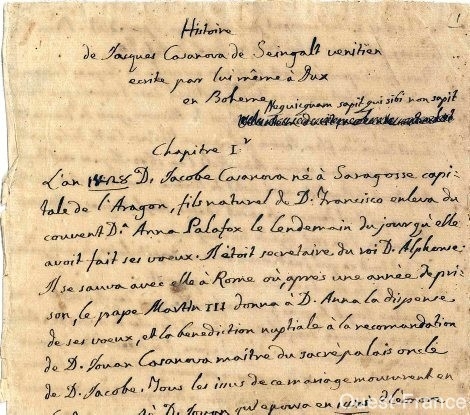 1
Histoire
de Jacques Casanova de Seingalt venitien
ecrite par lui même à Dux
en Boheme
Nequicquam sapit qui sibi non sapit
Chapitre I.r
L'an 1428 D. Jacobe Casanova né à Saragosse capi-
tale de l'Aragon, fils naturel de D. Francisco enleva du
couvent D.a Anna Palafox le lendemain du jour qu'elle
avoit fait ses voeux. Il étoit secretaire du roi D. Alphonse.
Il se sauva avec elle à Rome où après une année de pri-
son, le pape Martin III donna à D. Anna la dispense
de ses voeux, et la benediction nuptiale à la recomandation
de D. Jouan Casanova maitre du sacré palais oncle
de D. Jacobe. Tous les issus de ce mariage moururent en
D. Jouan qui epousa en
Ouest-France